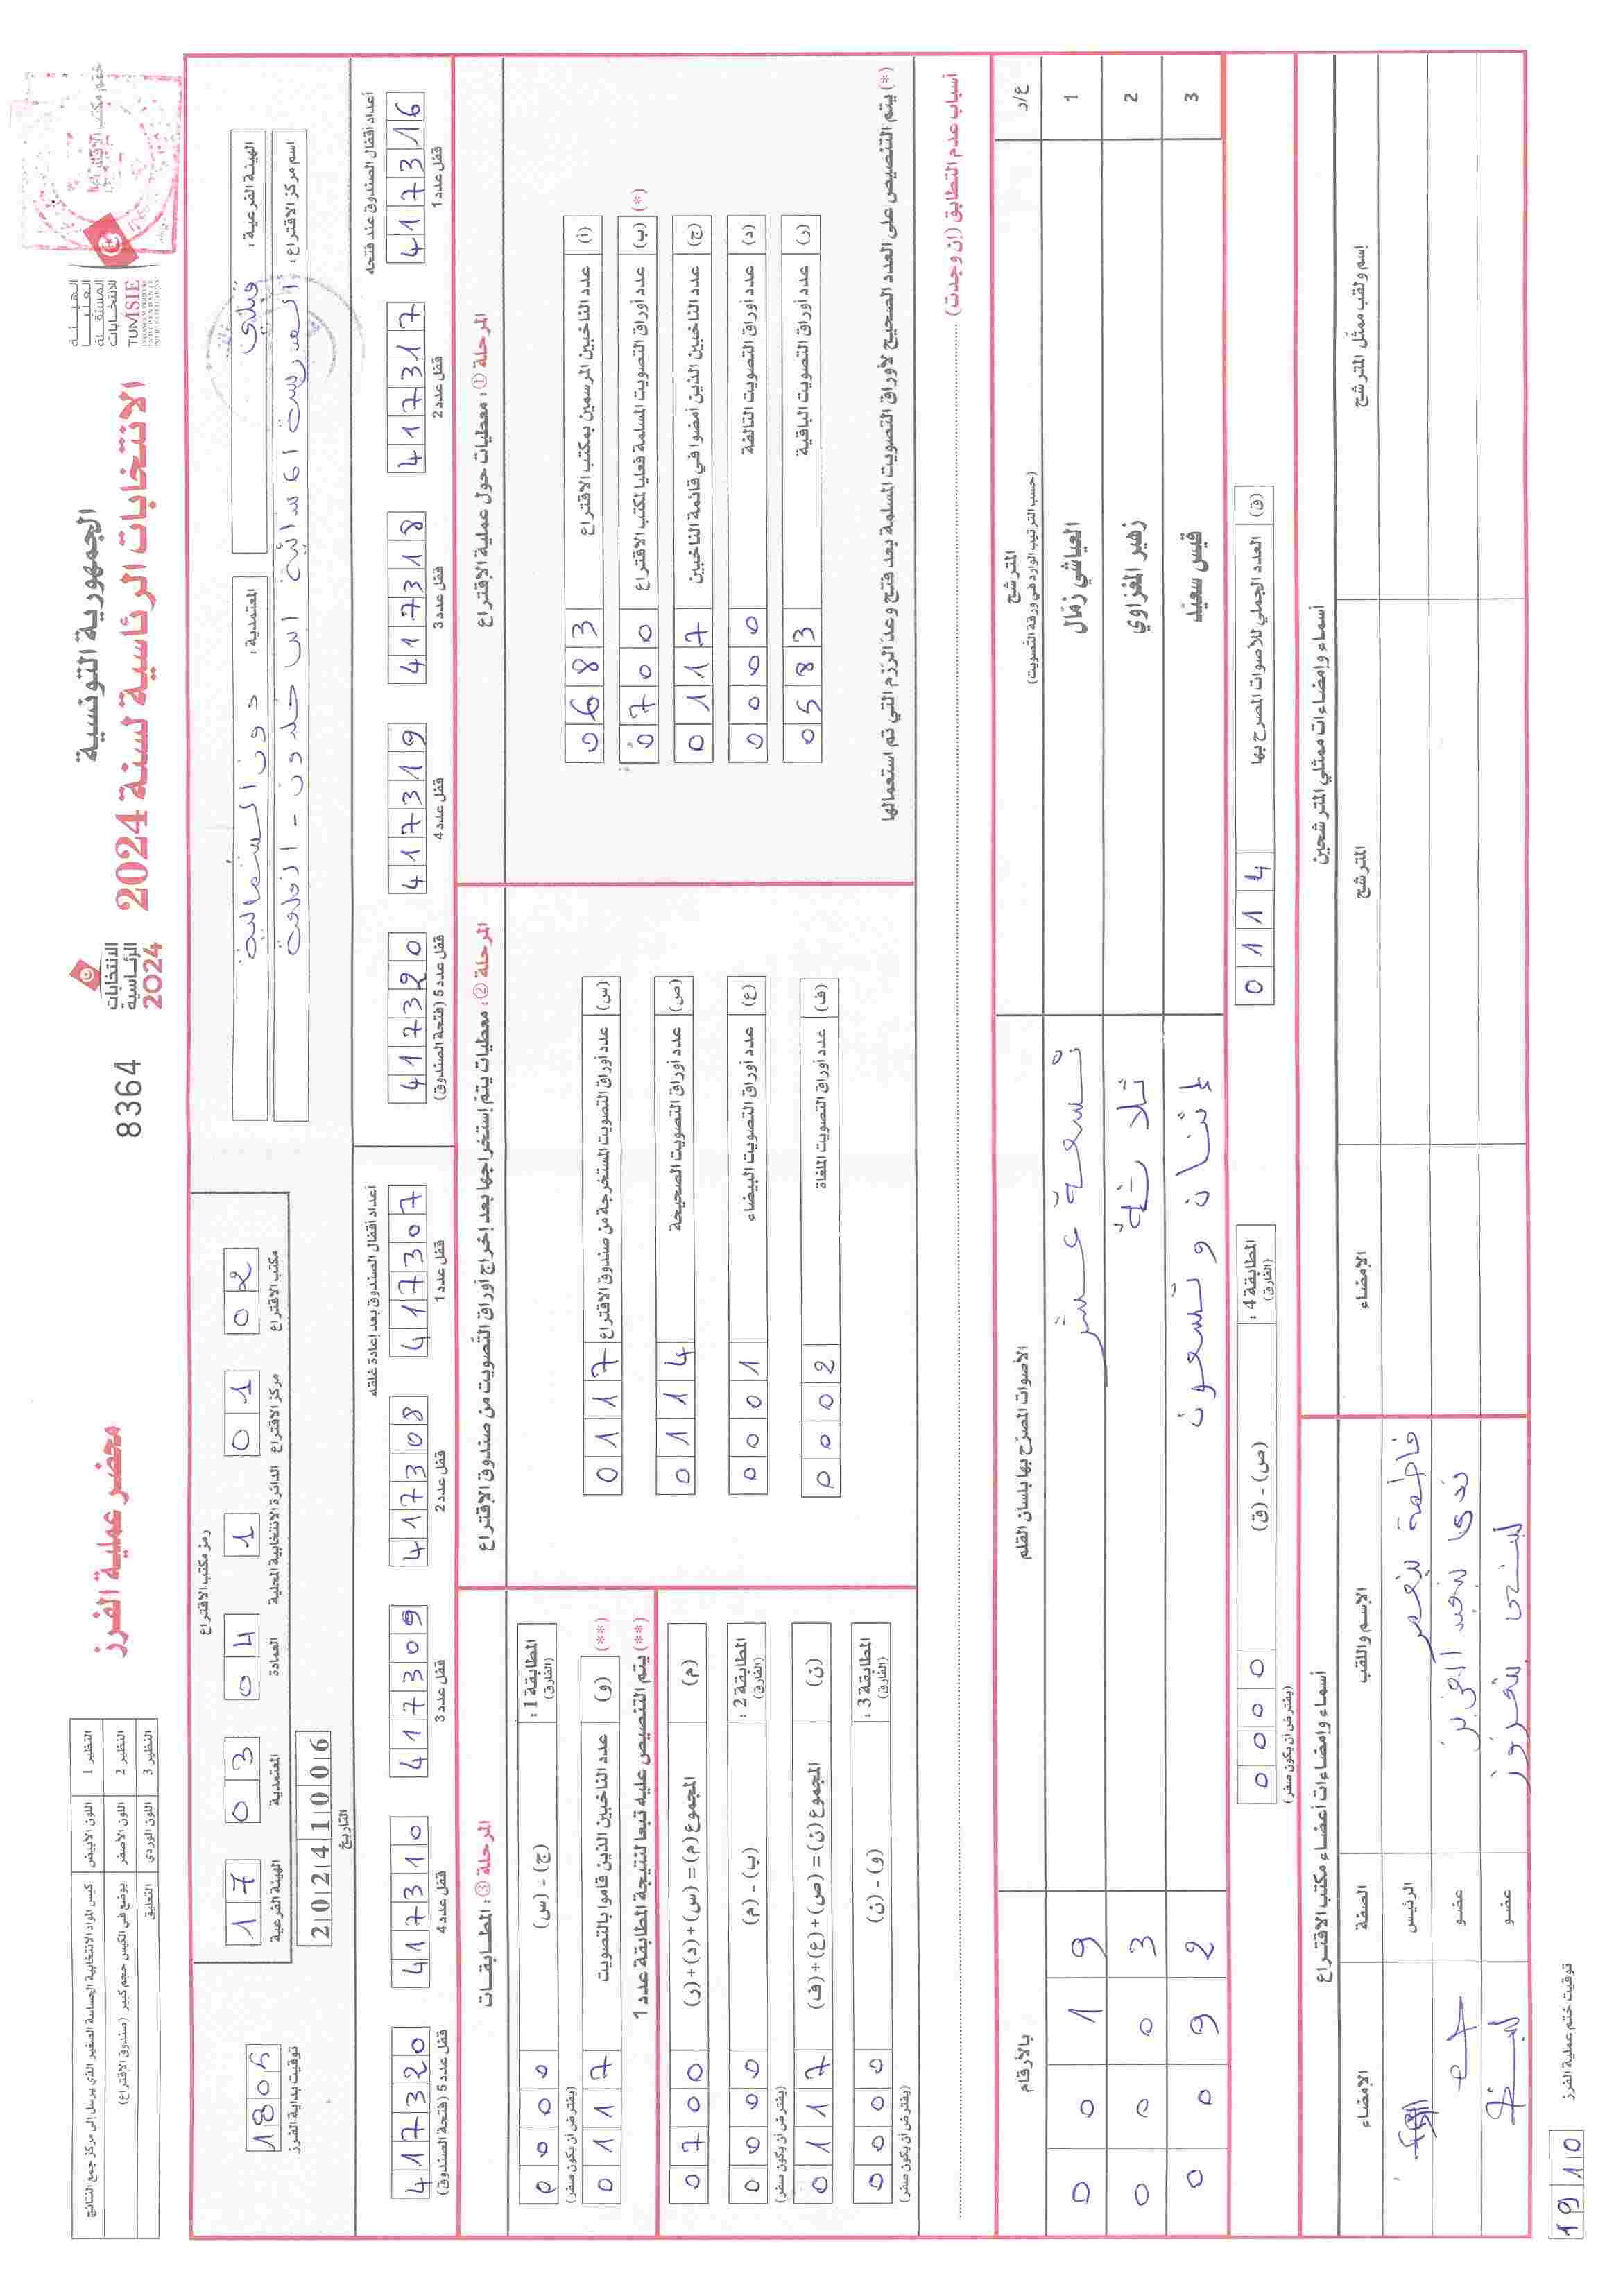 الجمهورية التونسية
الانتخابات الرئاسية لسنة 2024
الهيئة
العليا
المستقلة
للانتخابات
TUNISIE
ختم مكتب الاقتراع
الانتخابات
الرئاسية
2024
8364
محضر عملية الفرز
النظير 1 اللون الأبيض كيس المواد الانتخابية الحساسة الصغير الذي يرسل إلى مركز جمع النتائج
النظير 2 اللون الأصفر يوضع في الكيس حجم كبير (صندوق الاقتراع)
النظير 3 اللون الوردي التعليق
الهيئة الفرعية : قبلي
المعتمدية : دوز الشمالية
اسم مركز الاقتراع : المدرسة الاعدادية ابن خلدون -
رمز مكتب الاقتراع
17 03 04 1 01 02
الهيئة الفرعية المعتمدية العمادة الدائرة الانتخابية المحلية مركز الاقتراع مكتب الاقتراع
20241006
التاريخ
1805
توقيت بداية الفرز
أعداد أقفال الصندوق عند فتحه
417316 417317 417318 417319 417320
قفل عدد 1 قفل عدد 2 قفل عدد 3 قفل عدد 4 قفل عدد 5 (فتحة الصندوق)
أعداد أقفال الصندوق بعد إعادة غلقه
417307 417308 417309 417310 417320
قفل عدد 1 قفل عدد 2 قفل عدد 3 قفل عدد 4 قفل عدد 5 (فتحة الصندوق)
المرحلة ① : معطيات حول عملية الاقتراع
(أ) عدد الناخبين المرسمين بمكتب الاقتراع 0683
(*) (ب) عدد أوراق التصويت المسلمة فعليا لمكتب الاقتراع 0700
(ج) عدد الناخبين الذين أمضوا في قائمة الناخبين 0117
(د) عدد أوراق التصويت التالفة 0000
(ر) عدد أوراق التصويت الباقية 0583
(*) يتم التنصيص على العدد الصحيح لأوراق التصويت المسلمة بعد فتح وعد الرزم التي تم استعمالها
المرحلة ② : معطيات يتم إستخراجها بعد إخراج أوراق التصويت من صندوق الاقتراع
(س) عدد أوراق التصويت المستخرجة من صندوق الاقتراع 0117
(ص) عدد أوراق التصويت الصحيحة 0114
(ع) عدد أوراق التصويت البيضاء 0001
(ف) عدد أوراق التصويت الملغاة 0002
المرحلة ③ : المطابقات
المطابقة 1 : (الفارق) (ج) - (س) 0000
(يفترض أن يكون صفر)
(**) (و) عدد الناخبين الذين قاموا بالتصويت 0117
(**) يتم التنصيص عليه تبعا لنتيجة المطابقة عدد 1
(م) المجموع (م) = (س) + (د) + (ر) 0700
المطابقة 2 : (الفارق) (ب) - (م) 0000
(يفترض أن يكون صفر)
(ن) المجموع (ن) = (ص) + (ع) + (ف) 0117
المطابقة 3 : (الفارق) (و) - (ن) 0000
(يفترض أن يكون صفر)
أسباب عدم التطابق (إن وجدت)
ع/د المترشح الأصوات المصرح بها بلسان القلم بالأرقام
(حسب الترتيب الوارد في ورقة التصويت)
1 العياشي زمّال تسعة عشر 0019
2 زهير المغزاوي ثلاثة 0003
3 قيس سعيّد إثنان وتسعون 0092
(ق) العدد الجملي للأصوات المصرح بها 0114
المطابقة 4 : (الفارق) (ص) - (ق) 0000
(يفترض أن يكون صفر)
أسماء وإمضاءات ممثلي المترشحين
إسم ولقب ممثل المترشح المترشح الإمضاء
أسماء وإمضاءات أعضاء مكتب الاقتراع
الإسم واللقب الصفة الإمضاء
فاطمة بنعمر الرئيس
ندى عضو
لبنى عضو
توقيت ختم عملية الفرز
1910